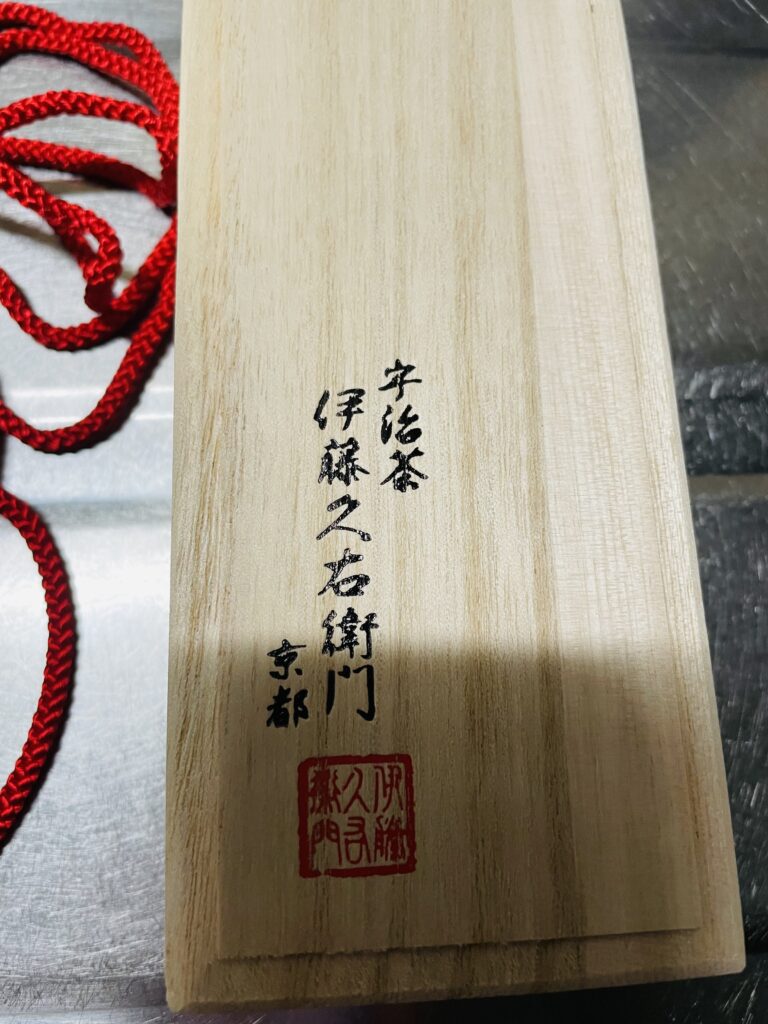 宇治茶
伊藤久右衛門
京都
伊藤
久右
衛門